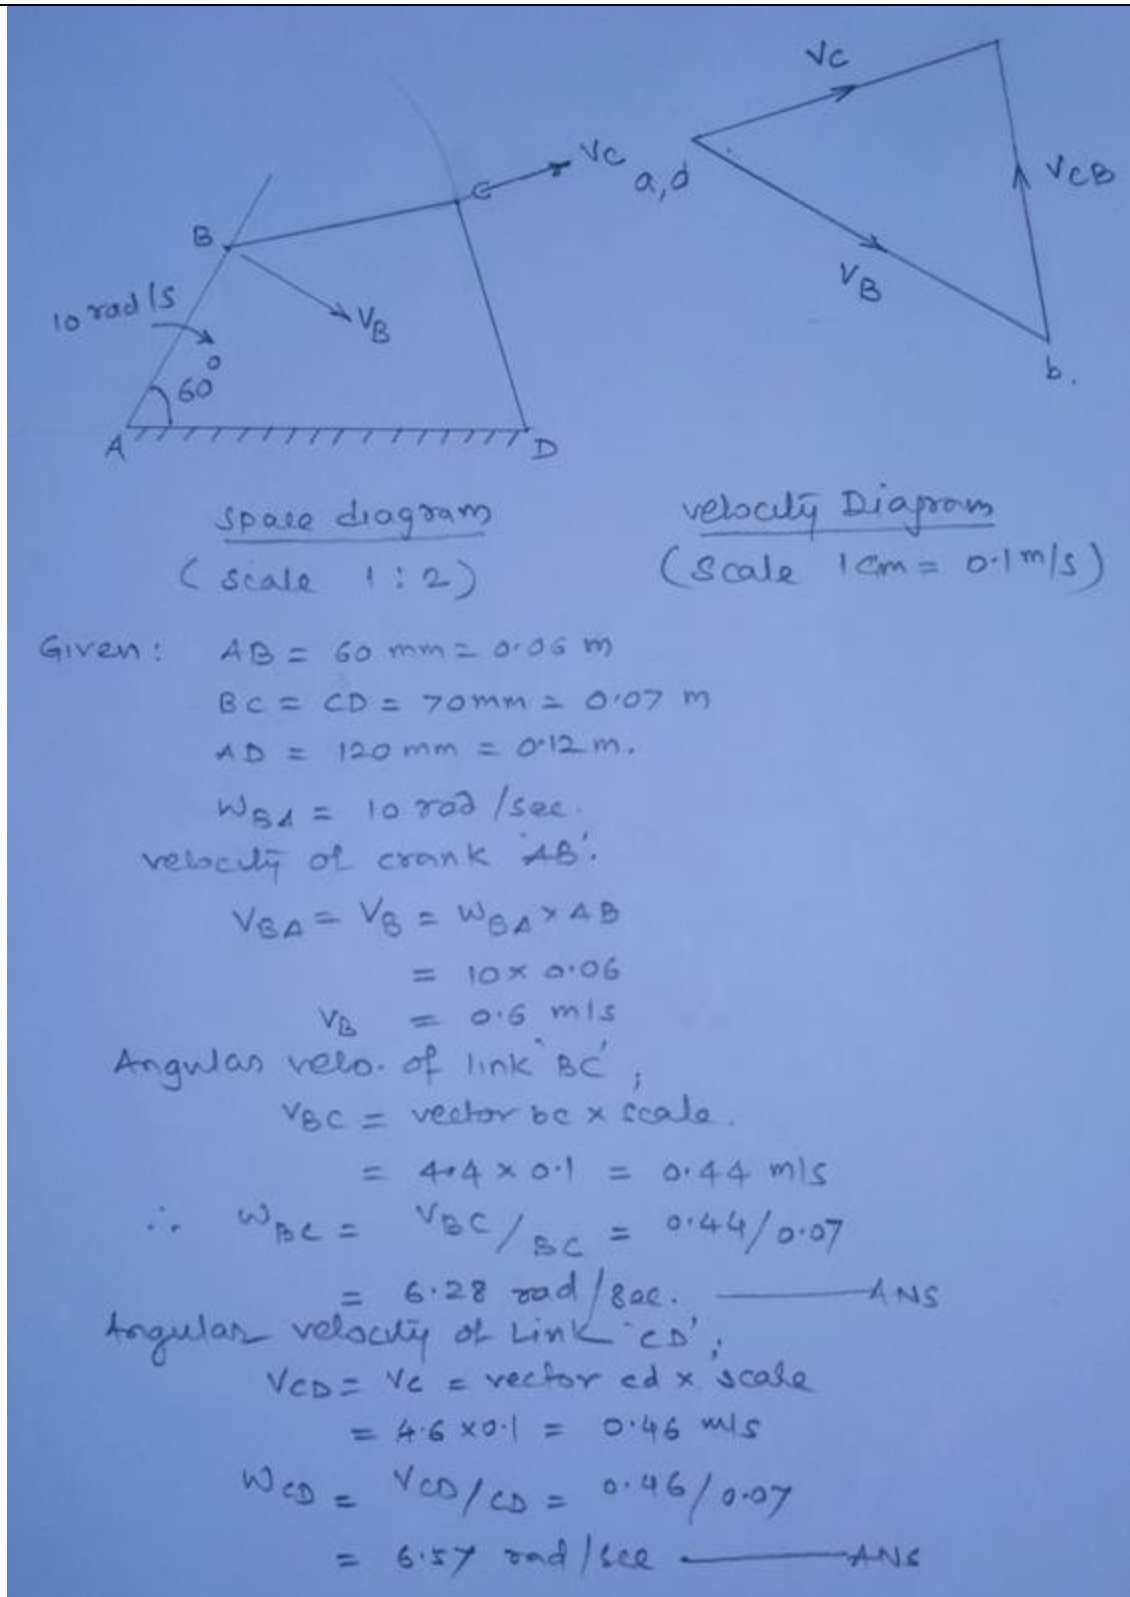 VC
VC
a,d
VCB
B
C
10 rad/s
VB
VB
60°
b.
A
D
space diagram
(scale 1:2)
velocity Diagram
(Scale 1cm = 0.1m/s)
Given: AB = 60 mm = 0.06 m
BC = CD = 70mm = 0.07 m
AD = 120 mm = 0.12 m.
WBA = 10 rad/sec.
velocity of crank 'AB'.
VBA = VB = WBA × AB
= 10 × 0.06
VB = 0.6 m/s
Angular velo. of link 'BC';
VBC = vector bc × scale.
= 4.4 × 0.1 = 0.44 m/s
∴ WBC = VBC/BC = 0.44/0.07
= 6.28 rad/sec. ——— ANS
Angular velocity of Link 'CD';
VCD = VC = vector cd × scale
= 4.6 × 0.1 = 0.46 m/s
WCD = VCD/CD = 0.46/0.07
= 6.57 rad/sec ——— ANS